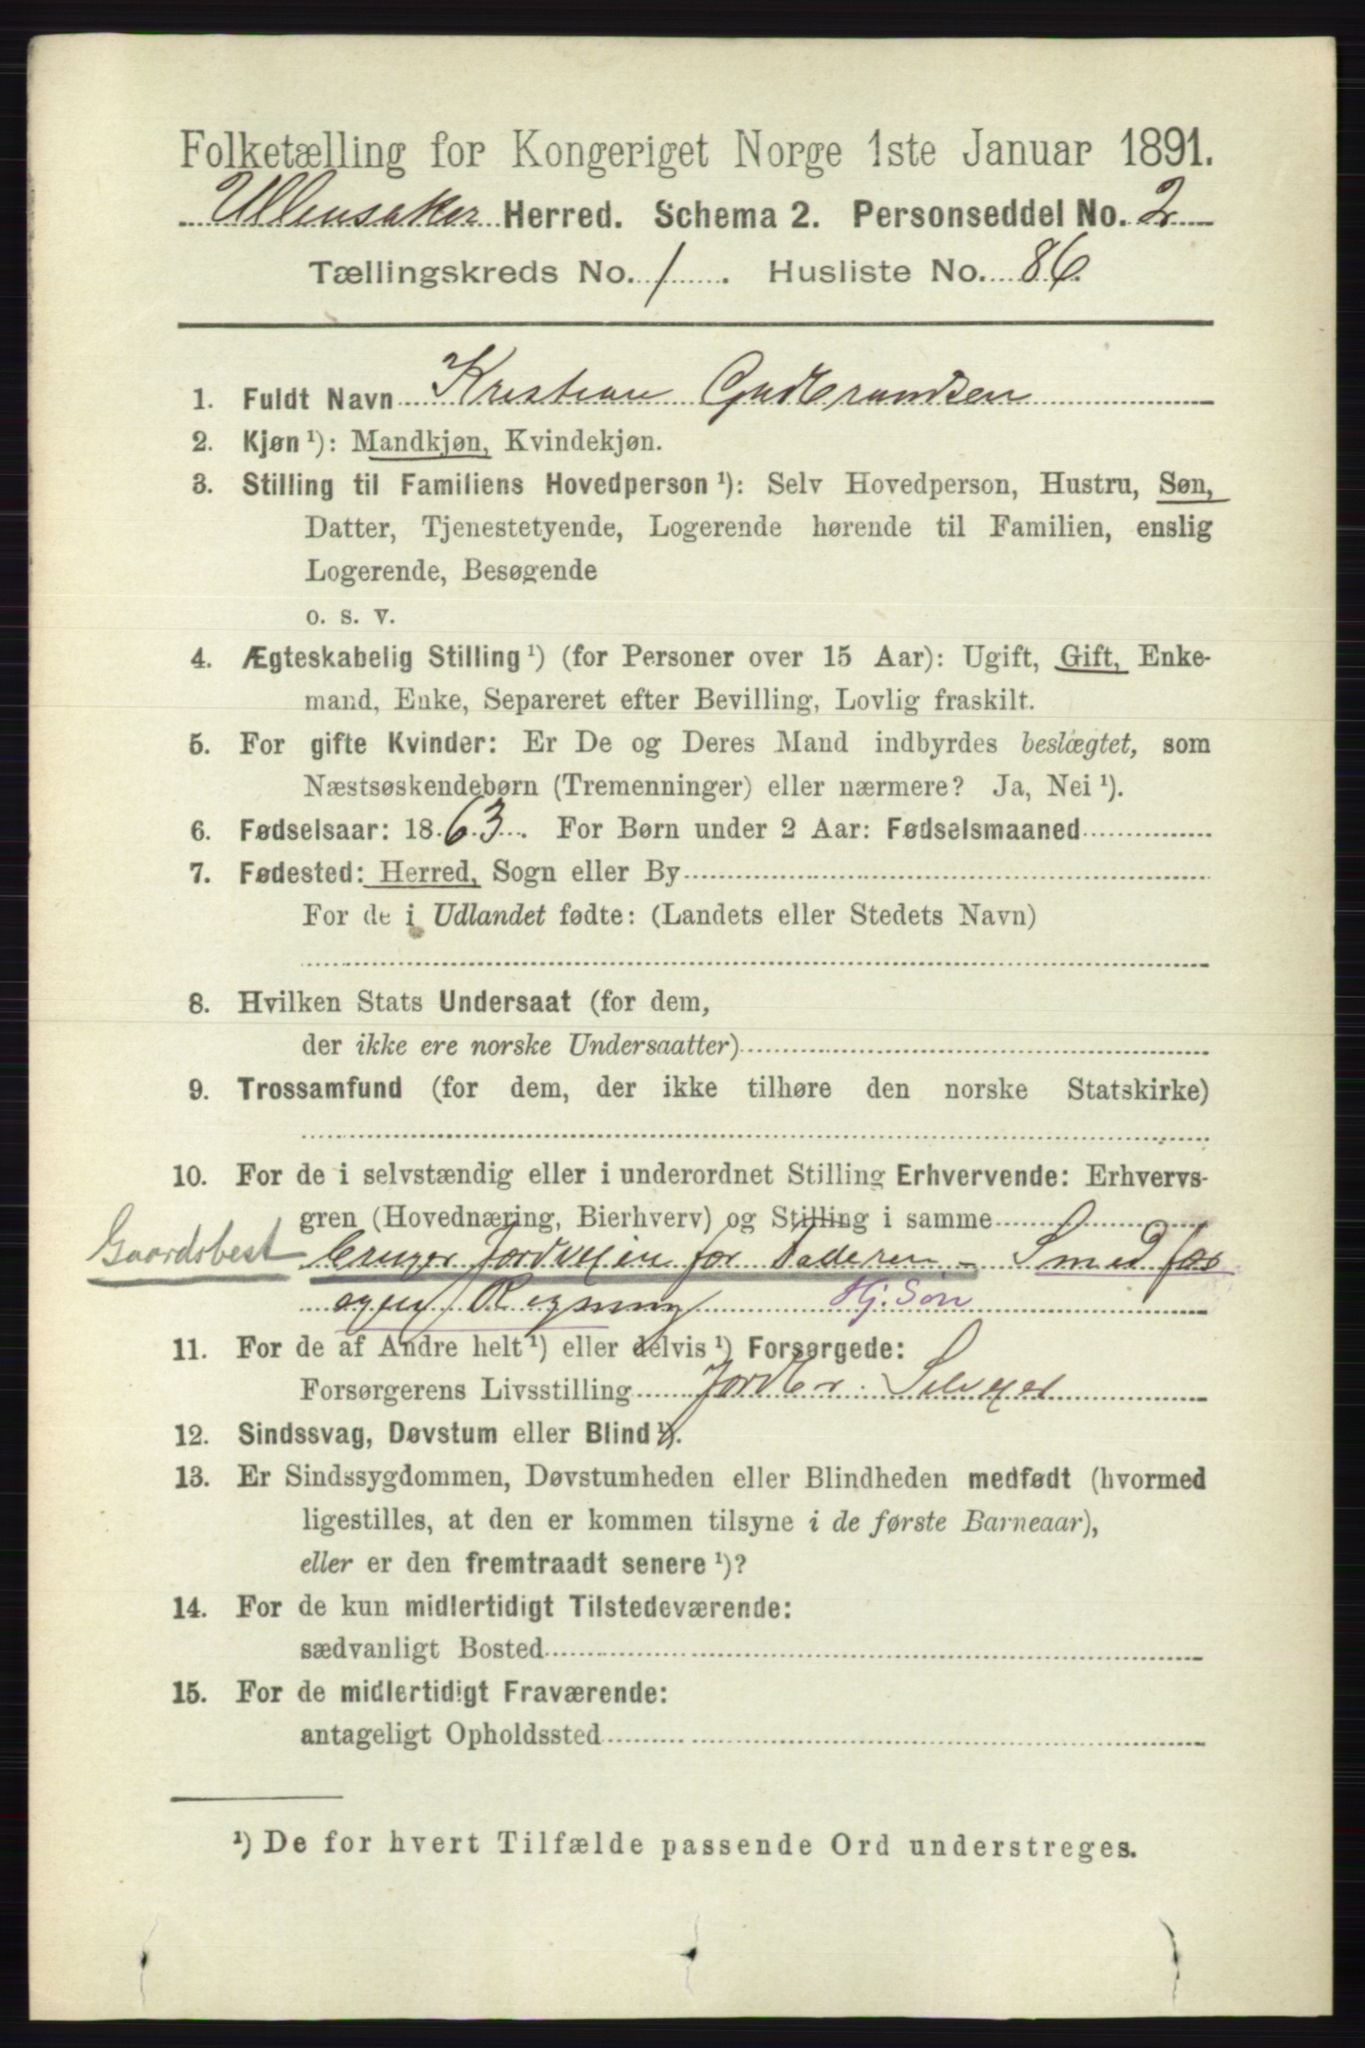 Folketælling for Kongeriget Norge 1ste Januar 1891.
Ullensaker Herred. Schema 2. Personseddel No. 2
Tællingskreds No. 1. Husliste No. 86
1. Fuldt Navn Kristian Gudbrandsen
2. Kjøn ¹): Mandkjøn, Kvindekjøn.
3. Stilling til Familiens Hovedperson ¹): Selv Hovedperson, Hustru, Søn,
Datter, Tjenestetyende, Logerende hørende til Familien, enslig
Logerende, Besøgende
o. s. v.
4. Ægteskabelig Stilling ¹) (for Personer over 15 Aar): Ugift, Gift, Enke-
mand, Enke, Separeret efter Bevilling, Lovlig fraskilt.
5. For gifte Kvinder: Er De og Deres Mand indbyrdes beslægtet, som
Næstsøskendebørn (Tremenninger) eller nærmere? Ja, Nei ¹).
6. Fødselsaar: 1863. For Børn under 2 Aar: Fødselsmaaned
7. Fødested: Herred, Sogn eller By
For de i Udlandet fødte: (Landets eller Stedets Navn)
8. Hvilken Stats Undersaat (for dem,
der ikke ere norske Undersaatter)
9. Trossamfund (for dem, der ikke tilhøre den norske Statskirke)
10. For de i selvstændig eller i underordnet Stilling Erhvervende: Erhvervs-
gren (Hovednæring, Bierhverv) og Stilling i samme
Gaardsbest bruger Jordveien for Faderen - Smed for
egen Regning Hj. Søn
11. For de af Andre helt ¹) eller delvis ¹) Forsørgede:
Forsørgerens Livsstilling Jordbr. Selveier
12. Sindssvag, Døvstum eller Blind ¹).
13. Er Sindssygdommen, Døvstumheden eller Blindheden medfødt (hvormed
ligestilles, at den er kommen tilsyne i de første Barneaar),
eller er den fremtraadt senere ¹)?
14. For de kun midlertidigt Tilstedeværende:
sædvanligt Bosted
15. For de midlertidigt Fraværende:
antageligt Opholdssted
¹) De for hvert Tilfælde passende Ord understreges.